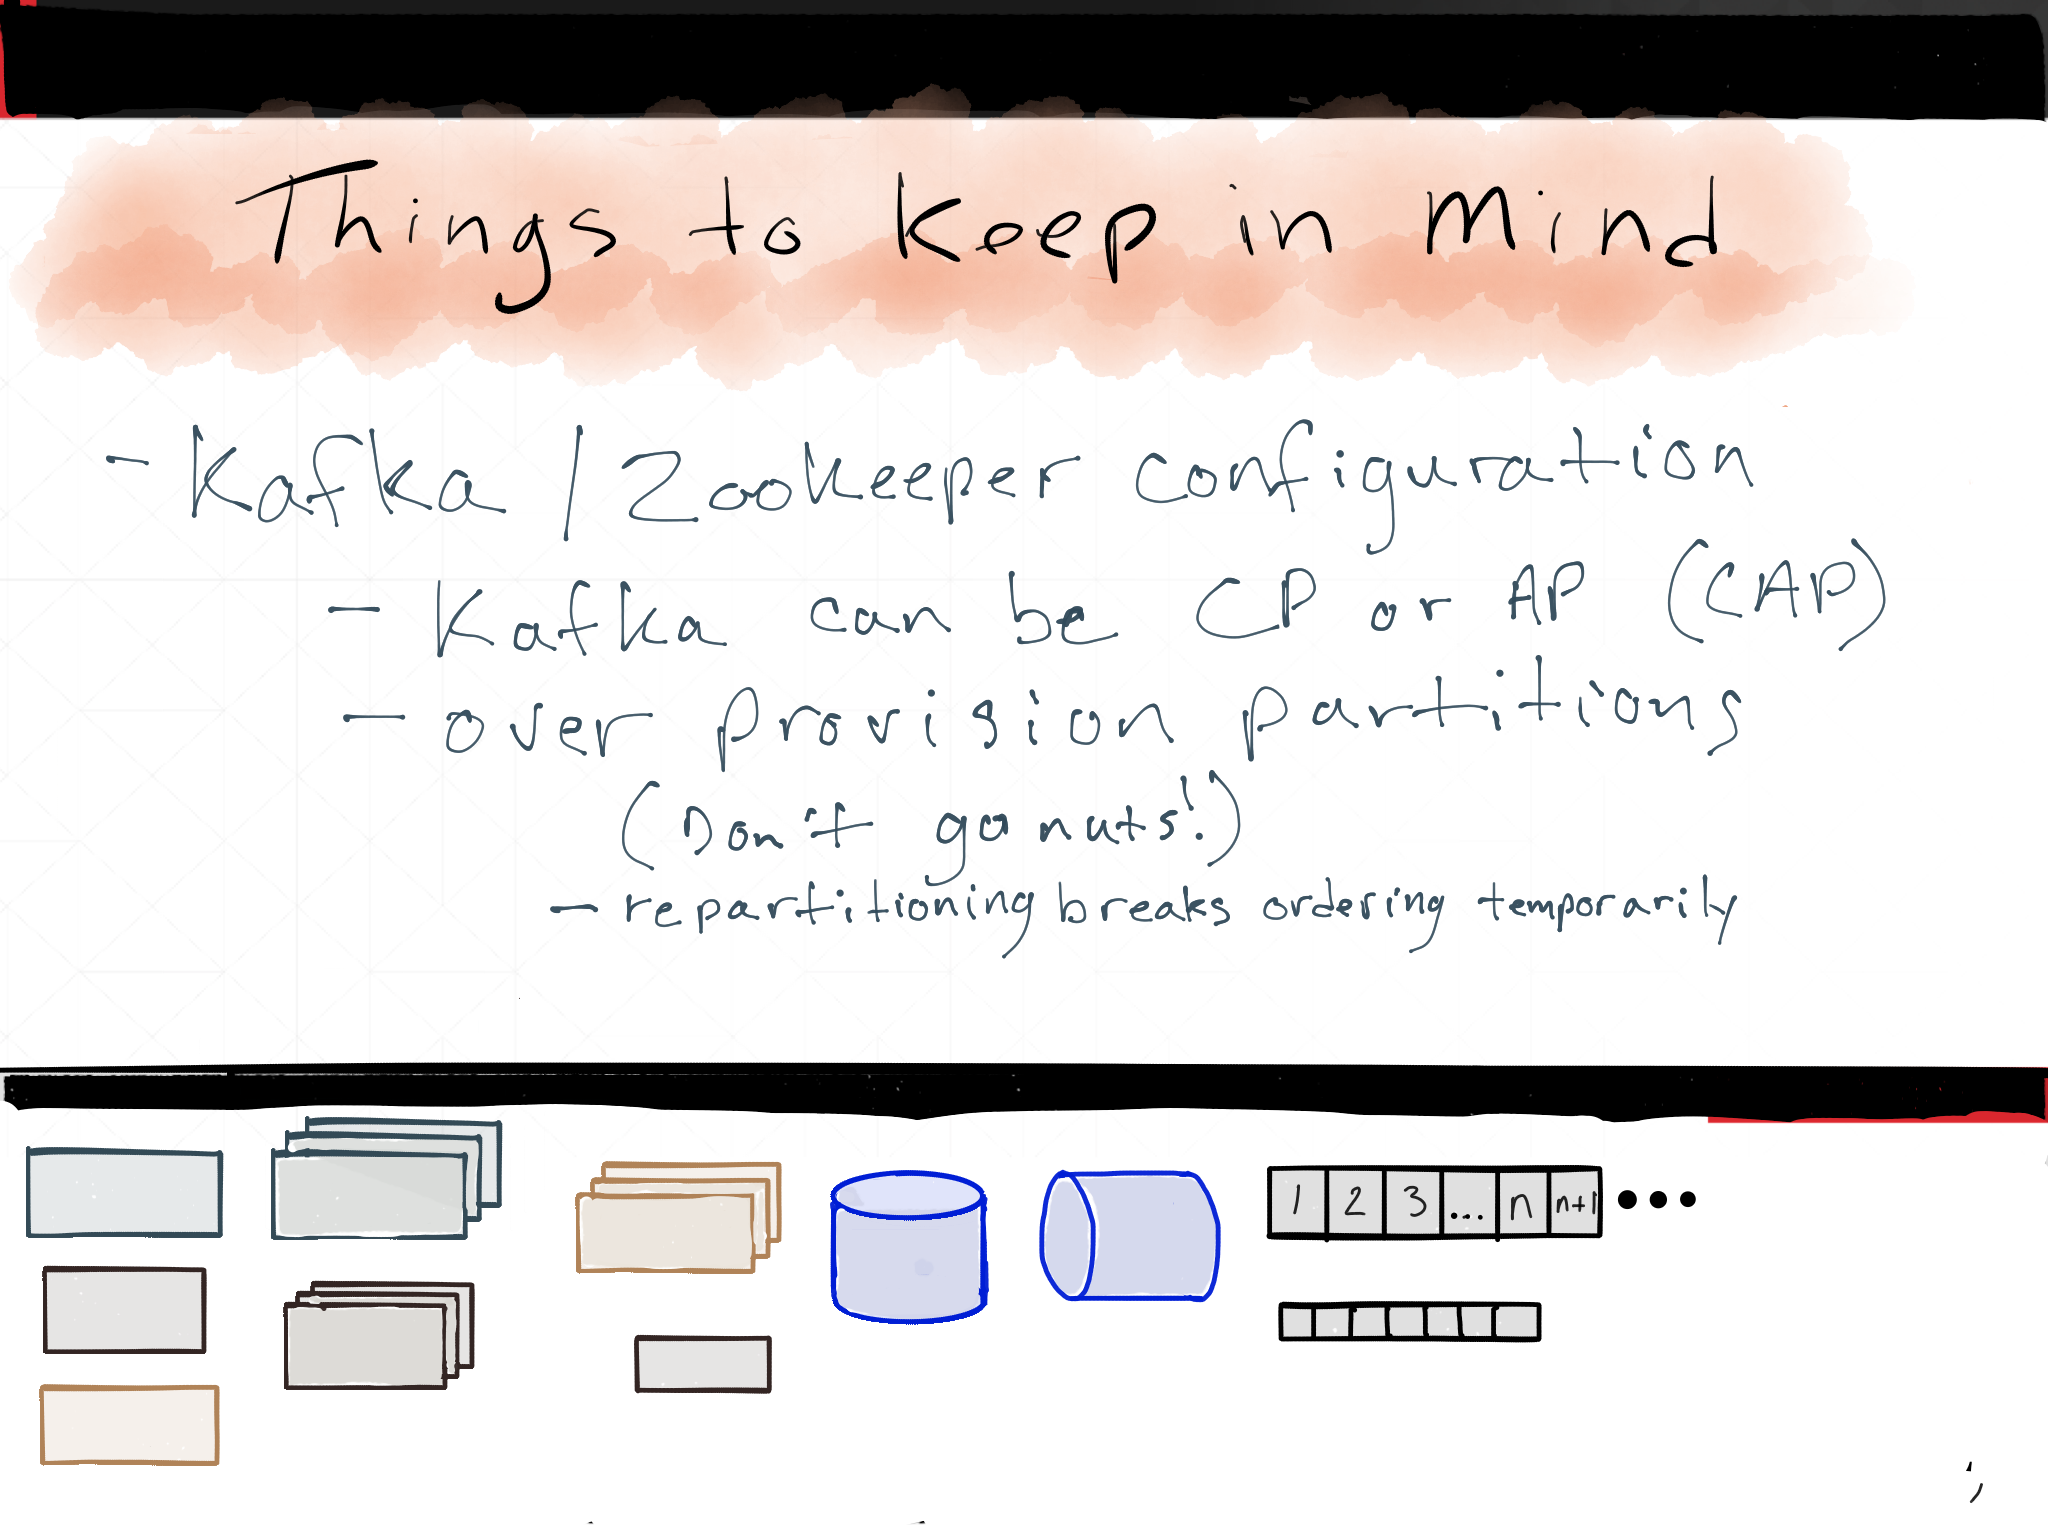 Things to Keep in Mind
- Kafka / Zookeeper configuration
- Kafka can be CP or AP (CAP)
- over provision partitions
(Don't go nuts!)
- repartitioning breaks ordering temporarily
1 2 3 ... n n+1 •••